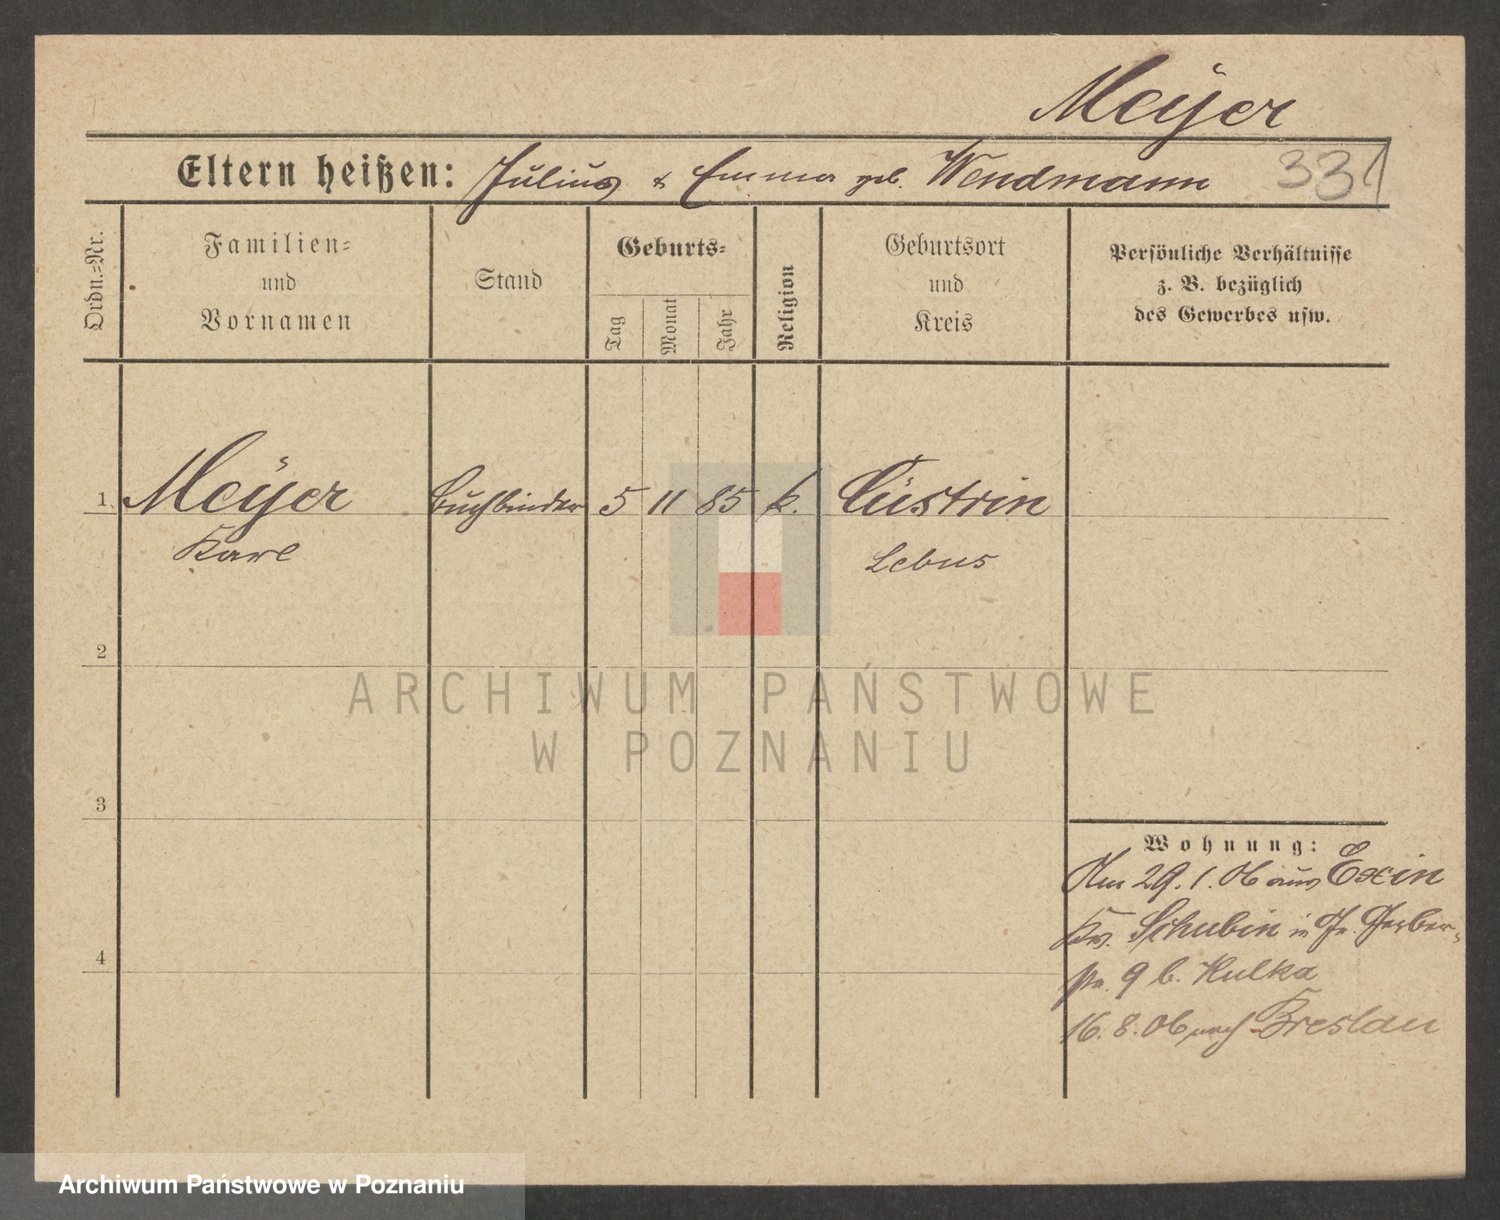 Meyer
Eltern heißen: Julius & Emma geb. Wendmann 331
Ordn.=Nr.
Familien=
und
Vornamen
Stand
Geburts=
Tag
Monat
Jahr
Religion
Geburtsort
und
Kreis
Persönliche Verhältnisse
z. B. bezüglich
des Gewerbes usw.
1. Meyer Buchbinder 5 11 85 k. Cüstrin
Karl Lebus
2
3
4
Wohnung:
Am 29.1.06 aus Exin
Kr. Schubin in Gerber=
str. 9 b. Kulka
16.8.06 nach Breslau
ARCHIWUM PAŃSTWOWE
W POZNANIU
Archiwum Państwowe w Poznaniu